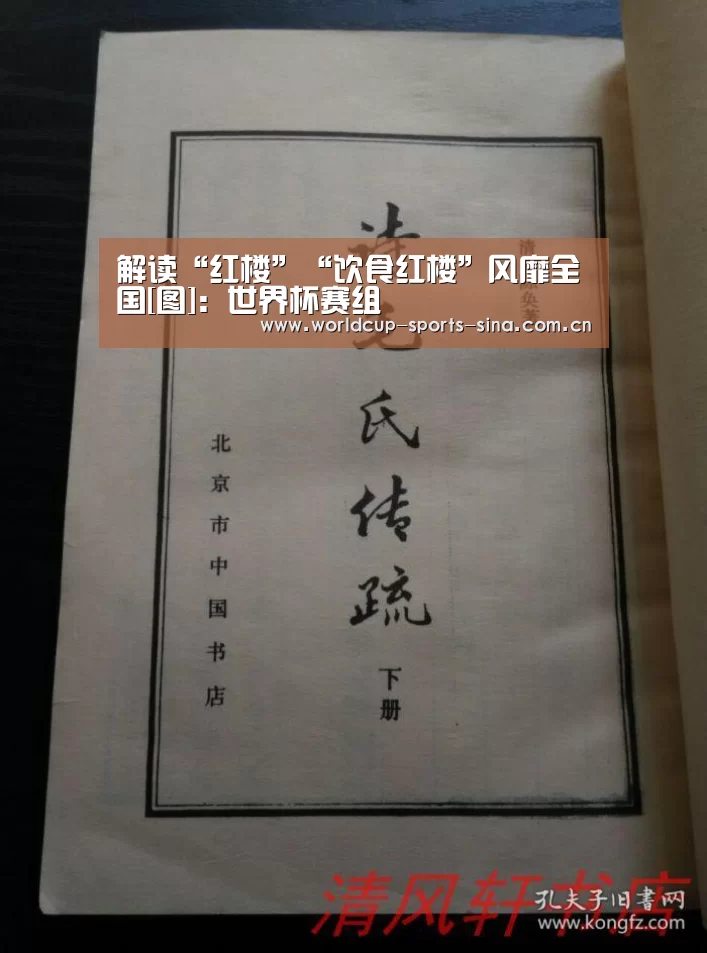 解读“红楼”“饮食红楼”风靡全
国[图]：世界杯赛组
www.worldcup-sports-sina.com.cn
清
奂著
诗毛氏传疏
下册
北京市中国书店
清风轩书店
孔夫子旧书网
www.kongfz.com